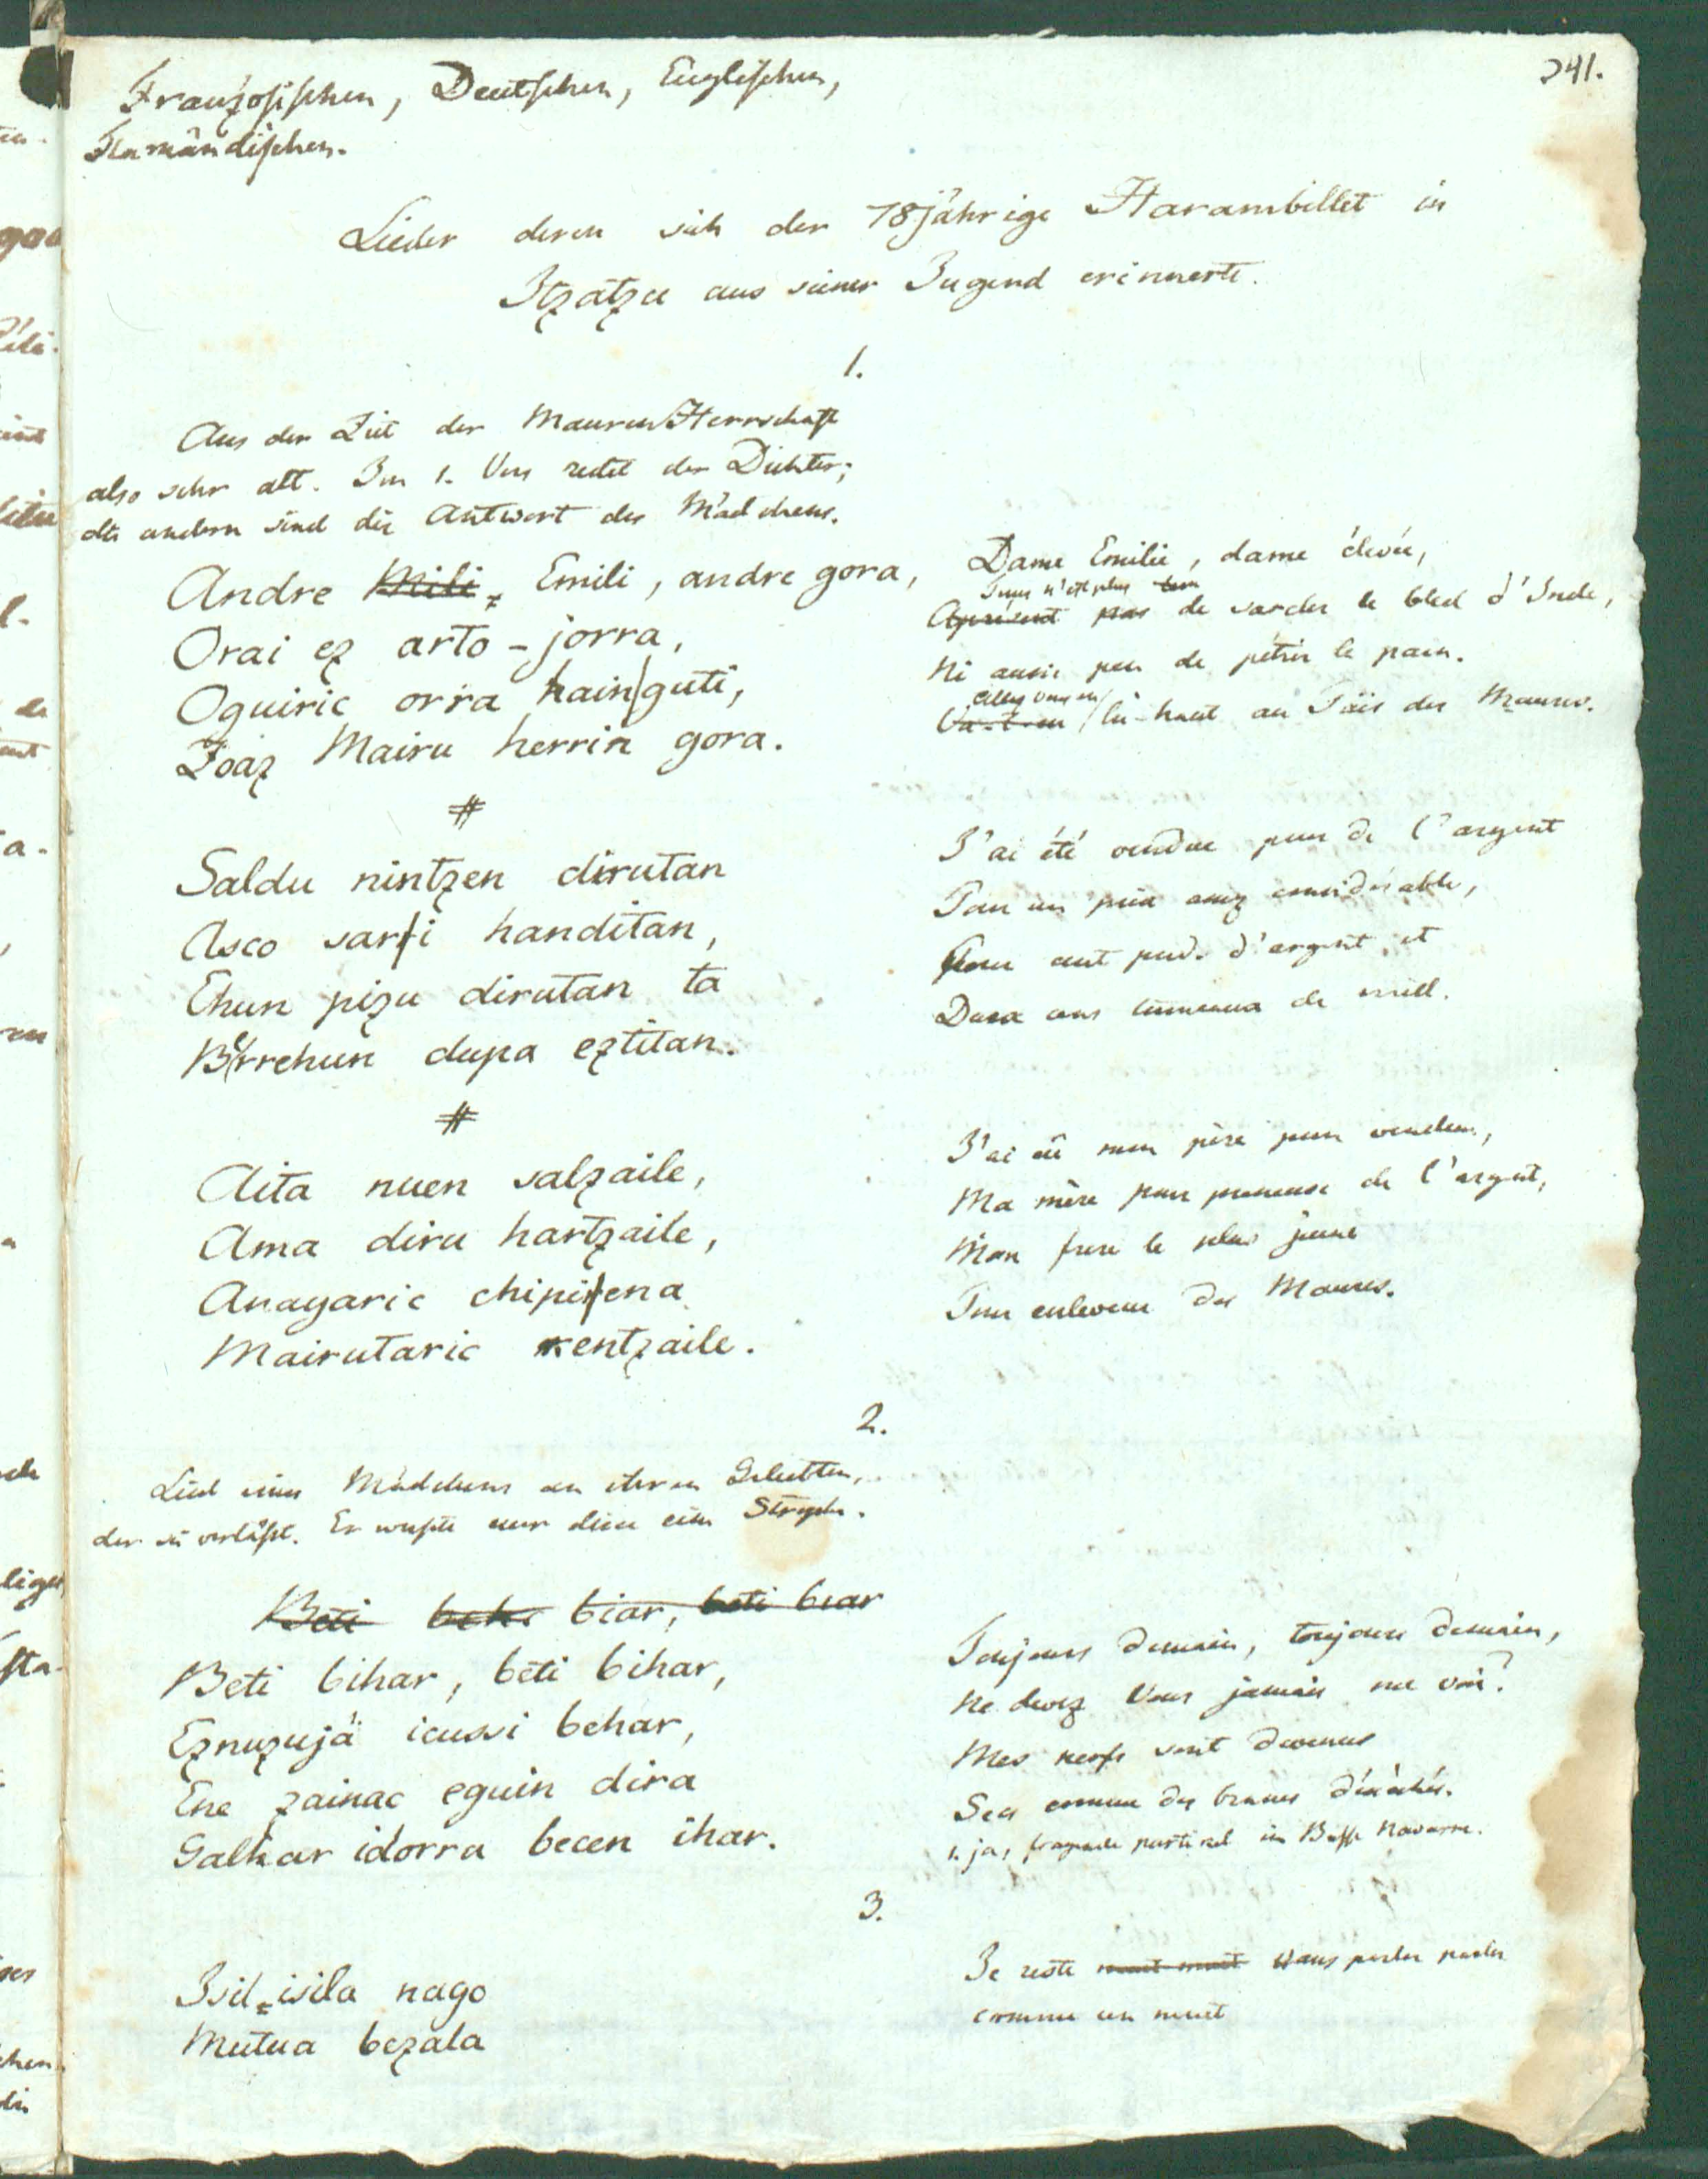 241.
Französischen, Deutschen, Englischen,
Flamändischen.
Lieder deren sich der 78jährige Harambillet in
Itzatzu aus seiner Jugend erinnerte.
1.
Aus der Zeit der MaurenHerrschaft
also sehr alt. Im 1. Vers redet der Dichter;
die andern sind die Antwort des Mädchens.
Andre Mili, Emili, andre gora,
Orai ez arto-jorra,
Oguiric orra hainguti,
Zoaz Mairu herrira gora.
Dame Emilie, dame élevée,
Tems n'est plus
Apresent pas de sarcler le bled d'Inde,
Ni aussi peu de pétrir le pain.
Allez vous en
Va-t-en là-haut au Païs des Maures.
#
Saldu nintzen dirutan
Asco sari handitan,
Ehun pizu dirutan ta
Berrehun dupa eztitan.
J'ai été vendue pour de l'argent
Pour un prix assez considérable,
Pour cent pud. d'argent, et
Deux cens tonneaux de miell.
#
Aita nuen salzaile,
Ama diru hartzaile,
Anayaric chipiena
Mairutaric kentzaile.
J'ai eû mon père pour vendeur,
Ma mère pour preneuse de l'argent,
Mon frere le plus jeune
Pour enleveur des Maures.
2.
Lied eines Mädchens an ihren Geliebten,
der sie verläßt. Er wußte nur diese eine Strophe.
Beti behi biar, beti biar
Beti bihar, beti bihar,
Eznuzujä icussi behar,
Ene zainac eguin dira
Galhar idorra becen ihar.
Toujours demain, toujours demain,
Ne devez Vous jamais me voir?
Mes nerfs sont devenus
Secs comme des branes
1. ja, fragende partikel in Basse Navarre.
3.
Isil-isila nago
Mutua bezala
Je reste muet muet sans parler parler
comme un muet